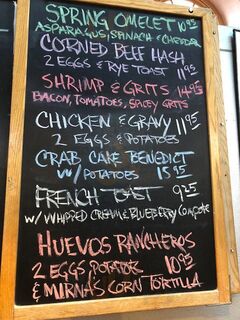 SPRING OMELET 10.95
ASPARAGUS, SPINACH & CHEDDAR
CORNED BEEF HASH
2 EGGS & RYE TOAST 11.95
SHRIMP & GRITS 14.95
BACON, TOMATOES, SPICY GRITS
CHICKEN & GRAVY 11.95
2 EGGS & POTATOES
CRAB CAKE BENEDICT
W/ POTATOES 15.95
FRENCH TOAST 9.25
W/ WHIPPED CREAM & BLUEBERRY COMPOTE
HUEVOS RANCHEROS
2 EGGS, POTATOES 10.95
& MIRNA'S CORN TORTILLA